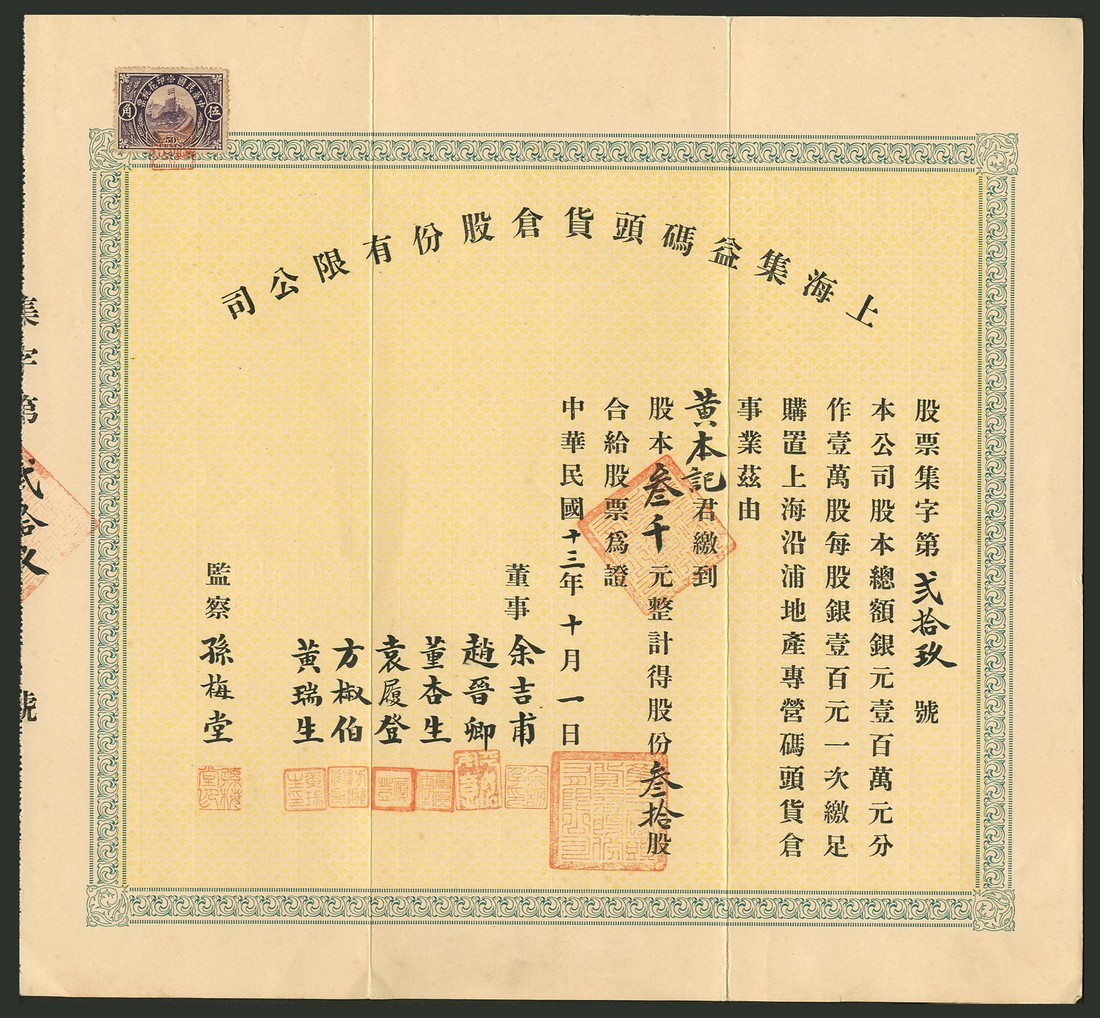 中華民國印花稅票
伍角
50
上海集益碼頭貨倉股份有限公司
股票集字第貳拾玖號
本公司股本總額銀元壹百萬元分
作壹萬股每股銀壹百元一次繳足
購置上海沿浦地產專營碼頭貨倉
事業茲由
黃本記君繳到
股本叁千元整計得股份叁拾股
合給股票爲證
中華民國十三年十月一日
董事余吉甫
趙晉卿
董杏生
袁履登
方椒伯
黃瑞生
監察孫梅堂
集字第貳拾玖號